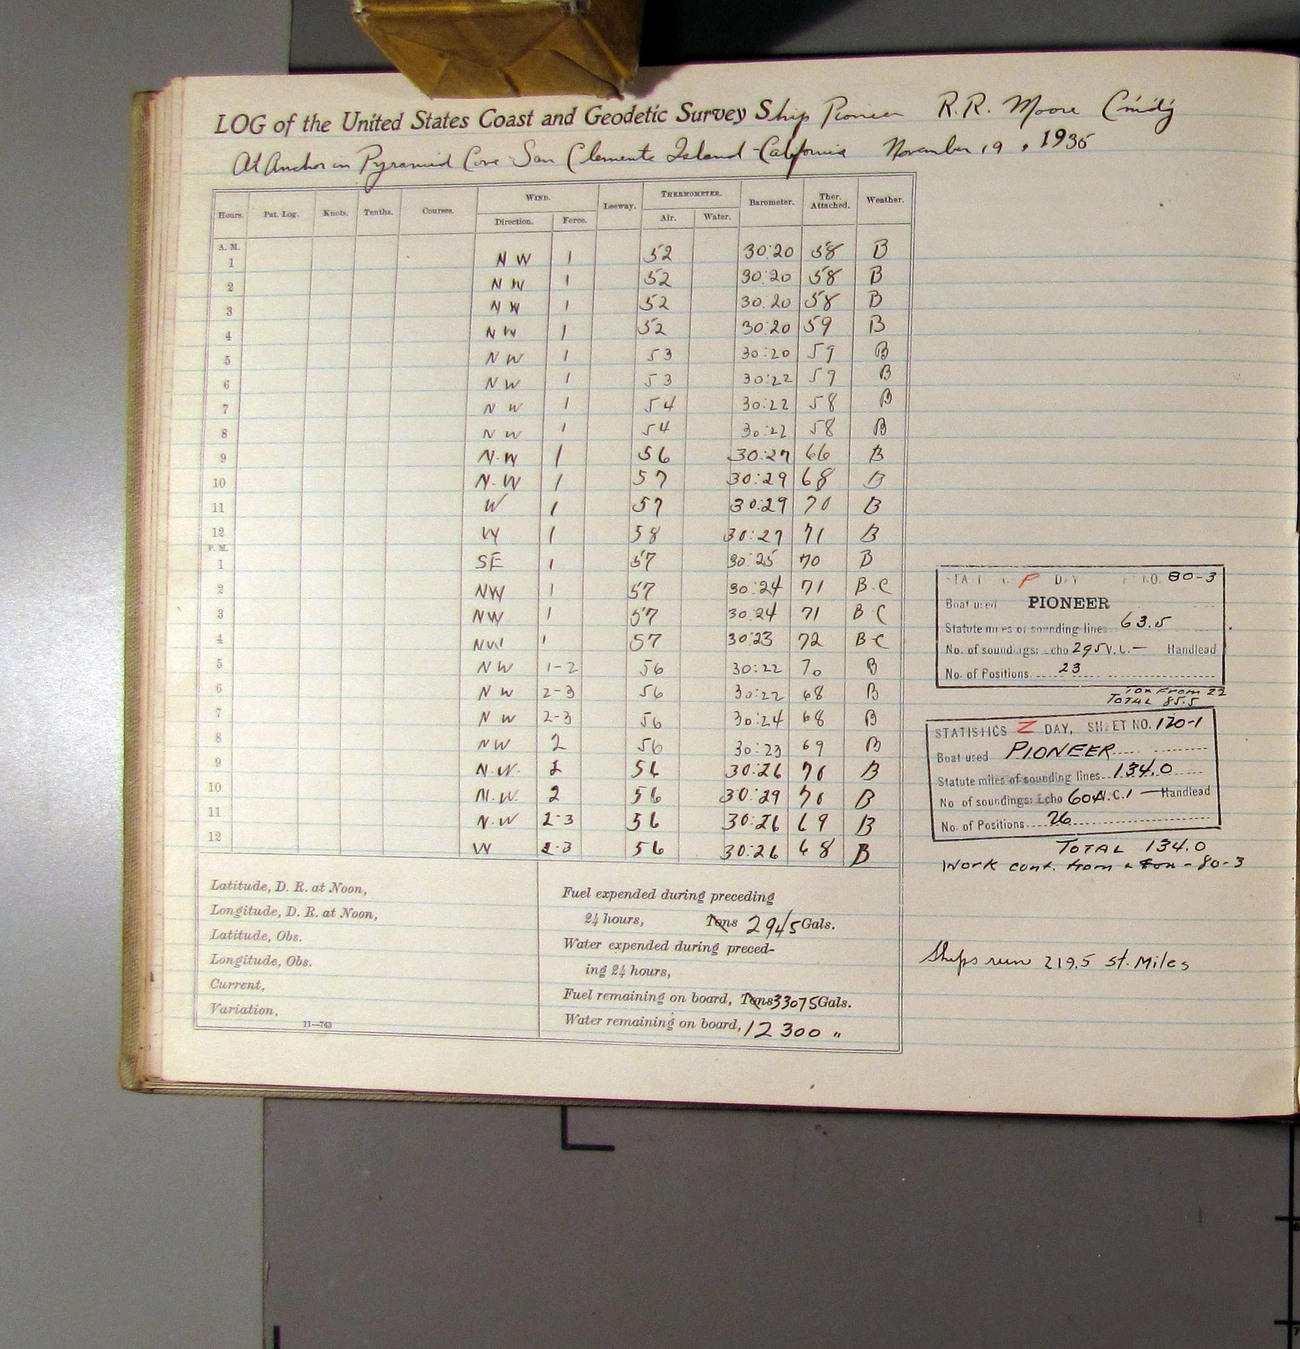 LOG of the United States Coast and Geodetic Survey Ship Pioneer R.R. Moore Cmdg
At Anchor in Pyramid Cove San Clemente Island - California November 19, 1935
Hours. Pat. Log. Knots. Tenths. Courses. Wind. Leeway. Thermometer. Barometer. Ther. Attached. Weather.
Direction. Force. Air. Water.
A. M.
1 NW 1 52 30:20 58 B
2 NW 1 52 30:20 58 B
3 NW 1 52 30.20 58 B
4 NW 1 52 30:20 59 B
5 NW 1 53 30:20 59 B
6 NW 1 53 30:22 59 B
7 NW 1 54 30:22 58 B
8 NW 1 54 30:22 58 B
9 N.W 1 56 30:27 66 B
10 N.W 1 57 30:29 68 B
11 W 1 57 30:29 70 B
12 W 1 58 30:27 71 B
P. M.
1 SE 1 57 30:25 70 B
2 NW 1 57 30:24 71 B-C
3 NW 1 57 30.24 71 B C
4 NW 1 57 30:23 72 B-C
5 NW 1-2 56 30:22 70 B
6 NW 2-3 56 30:22 68 B
7 NW 2-3 56 30:24 68 B
8 NW 2 56 30:23 69 B
9 N.W. 2 56 30:26 70 B
10 N.W. 2 56 30:29 70 B
11 N.W 2-3 56 30:26 69 B
12 W 2-3 56 30:26 68 B
Latitude, D. R. at Noon,
Longitude, D. R. at Noon,
Latitude, Obs.
Longitude, Obs.
Current,
Variation,
11—763
Fuel expended during preceding
24 hours, Tons 2945 Gals.
Water expended during preced-
ing 24 hours,
Fuel remaining on board, Tons 33075 Gals.
Water remaining on board, 12300 "
P DAY NO. 80-3
Boat used PIONEER
Statute miles of sounding lines 63.5
No. of soundings: Echo 295 V.C. — Handlead
No. of Positions 23
from 22
TOTAL 85.5
STATISTICS Z DAY, SHEET NO. 120-1
Boat used PIONEER
Statute miles of sounding lines 134.0
No of soundings: Echo 604 V.C. 1 — Handlead
No. of Positions 26
TOTAL 134.0
Work cont. from - 80-3
Ships run 219.5 st. Miles